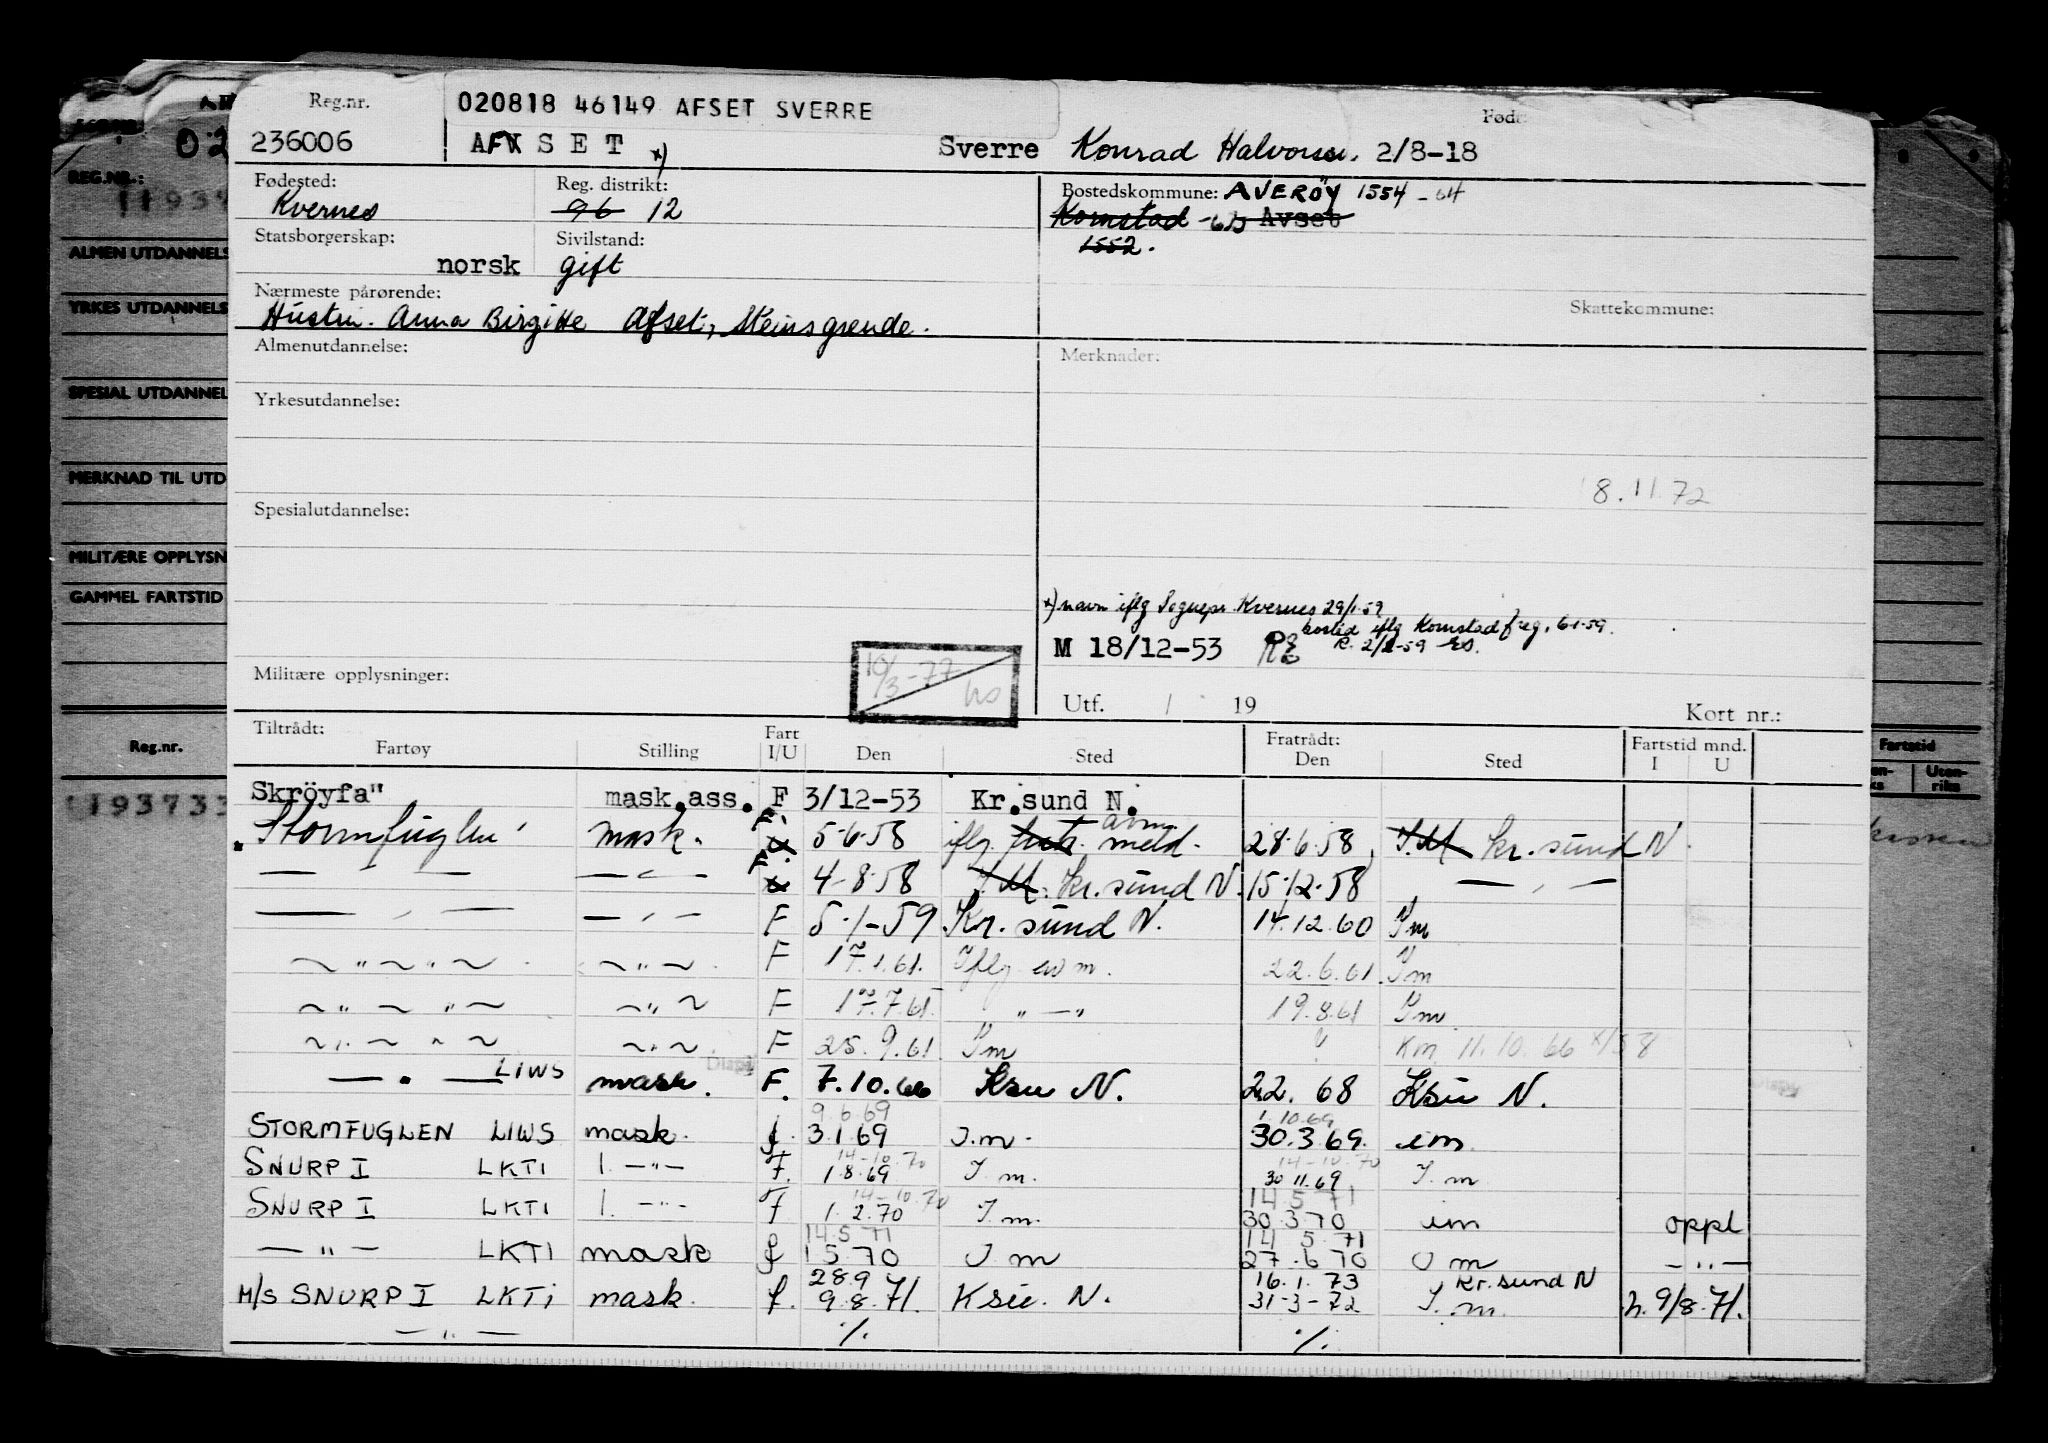 Reg.nr. 020818 46149 AFSET SVERRE Født
236006 AFSET x) Sverre Konrad Halvorsen. 2/8-18
Fødested: Kvernes Reg. distrikt: 96 12 Bostedskommune: AVERØY 1554 - 64
Kornstad Avset
1552.
Statsborgerskap: norsk Sivilstand: gift
Nærmeste pårørende: Skattekommune:
Hustru. Anna Birgitte Afset, Steinsgrende.
Almenutdannelse: Merknader:
Yrkesutdannelse:
8.11.72
Spesialutdannelse:
x) navn iflg Sognepr. Kvernes 29/1-59
bosted iflg Kornstad f.reg. 6-1-59.
M 18/12-53 R. 2/2-59
Militære opplysninger: 18/3-77
Utf. / 19 Kort nr.:
Tiltrådt: Fratrådt: Fartstid mnd.
Fartøy Stilling Fart I/U Den Sted Den Sted I U
Skröyfa" mask.ass. F 3/12-53 Kr.sund N.
"Stormfuglen" mask. F. 5-6-58 iflg meld. 28-6-58 I.M Kr.sund N.
— " — — " — F. 4-8-58 I.M. Kr.sund N. 15-12-58 — " —
— " — — " — F 5-1-59 Kr.sund N. 14.12.60 Im
— " — " — — " — F 17.1.61. Iflg m. 22.6.61. Im
— " — " — — " — F 1.7.61. " — " 19.8.61 Im
— " — " — — " — F 25.9.61 Im ? Km 11.10.66
— " — LIWS mask. F. 7.10.66 Ksu N. 22. 68 Ksu N.
9.6.69 1.10.69
STORMFUGLEN LIWS mask. f. 3.1.69 I.m. 30.3.69. im
14-10.70 14-10.70
SNURP I LKTI 1. — " — F. 1.8.69 I.m. 30 11.69 I.m
14-10.70 14 5 71
SNURP I LKTI 1. — " — f 1.2.70 I.m. 30 3 70 im oppl
14.5 71 14 5.71
— " — LKTI mask f 1 5 70 I m 27.6 70 I m — " —
28.9 16.1.73 Kr.sund N
M/S SNURP I LKTI mask. f. 9.8.71. Ksu. N. 31-3-72 I.m. h. 9/8.71.
— " — %. %.
REG.NR.: 11937
ALMEN UTDANNELS
YRKES UTDANNELS
SPESIAL UTDANNEL
MERKNAD TIL UTD
MILITÆRE OPPLYSN
GAMMEL FARTSTID
Reg.nr. Fartstid
Uten-
riks
193733